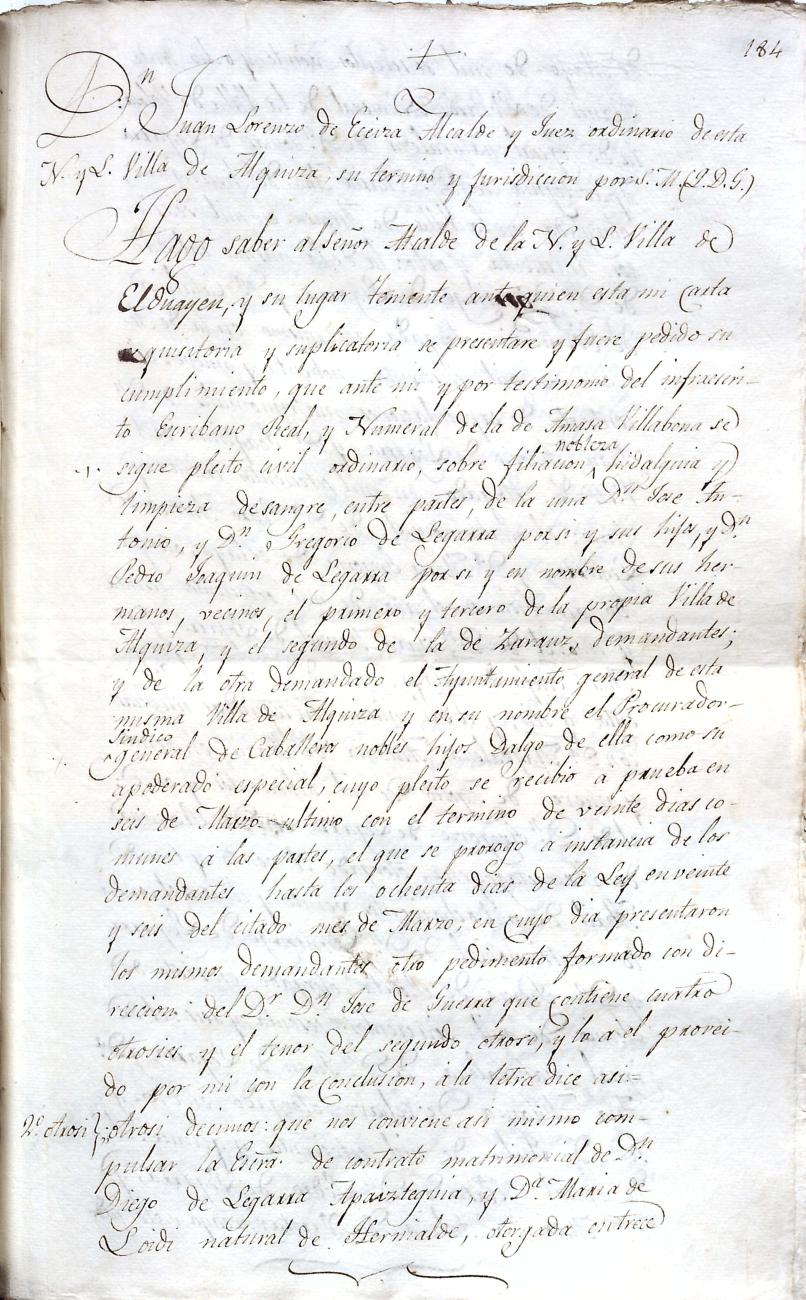 184
D.n Juan Lorenzo de Eceiza Alcalde y Juez ordinario de esta
N. y L. Villa de Alquiza, su termino y jurisdiccion por S. M. (Q. D. G.)
Hago saber al señor Alcalde de la N. y L. Villa de
Elduayen, y su lugar Teniente ante quien esta mi carta
requisitoria y suplicatoria se presentare y fuere pedido su
cumplimiento, que ante mi y por testimonio del infraescri-
to Escribano Real, y Numeral de la de Amasa Villabona se
sigue pleito civil ordinario, sobre filiacion, nobleza hidalguia y
limpieza de sangre, entre partes, de la una D.n Jose An-
tonio, y D.n Gregorio de Legarra por si y sus hijos, y D.n
Pedro Joaquin de Legarra por si y en nombre de sus her-
manos, vecinos, el primero y tercero de la propia Villa de
Alquiza, y el segundo de la de Zarauz, demandantes;
y de la otra demandado el Ayuntamiento general de esta
misma Villa de Alquiza y en su nombre el Procurador
Sindico general de Caballeros nobles hijos Dalgo de ella como su
apoderado especial, cuyo pleito se recibio á prueba en
seis de Marzo ultimo con el termino de veinte dias co-
munes á las partes, el que se prorogó á instancia de los
demandantes hasta los ochenta dias de la Ley en veinte
y seis del citado mes de Marzo, en cuyo dia presentaron
los mismos demandantes otro pedimento formado con di-
reccion del D.r D.n Jose de Guerra que contiene cuatro
otrosies, y el tenor del segundo otrosi, y lo á el provei-
do por mi con la conclusion, á la letra dice asi=
2.o otrosi } otrosi decimos: que nos conviene asi mismo com-
pulsar la Escra. de contrato matrimonial de D.n
Diego de Legarra Apaizteguia, y D.a Maria de
Loidi natural de Hernialde, otorgada en trece